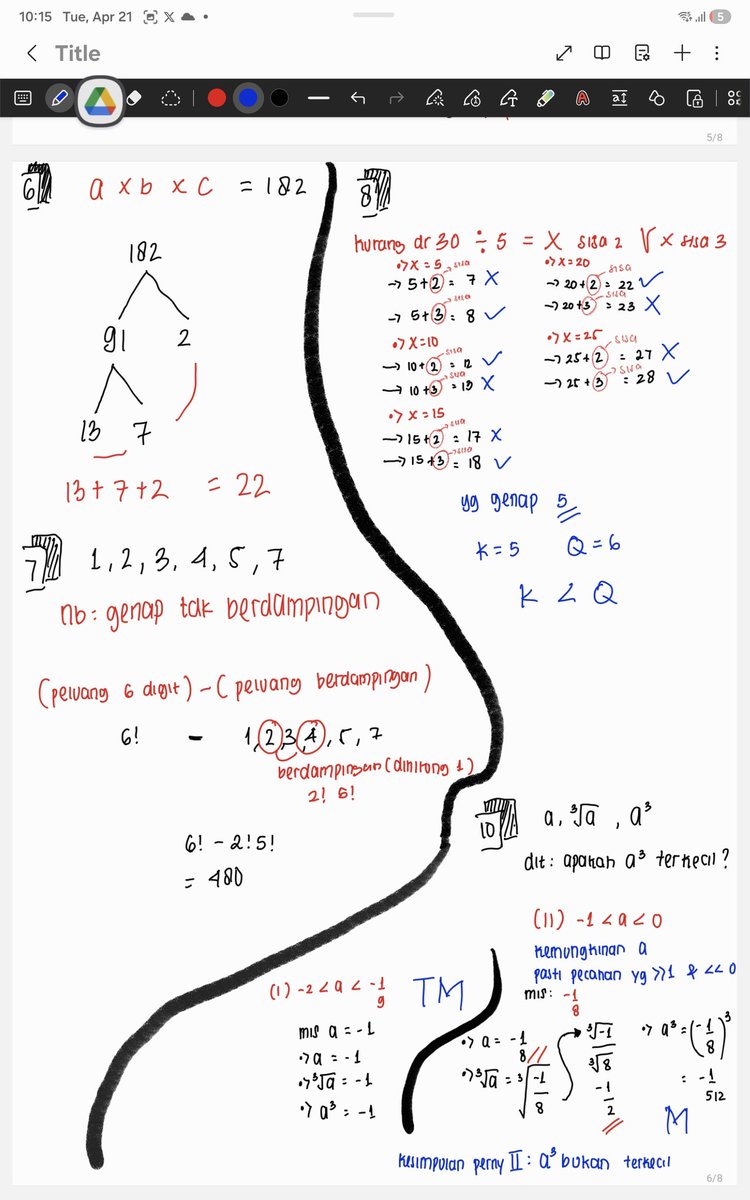 10:15 Tue, Apr 21
5
Title
5/8
6
a x b x c = 182
182
91 2
13 7
13+7+2 = 22
7
1, 2, 3, 4, 5, 7
nb: genap tak berdampingan
(peluang 6 digit) - ( peluang berdampingan)
6! - 1, 2, 3, 4, 5, 7
berdampingan (dihitong 1)
2! 5!
6! - 2!5!
= 480
8
kurang dr 30 ÷ 5 = X sisa 2 V x sisa 3
•> X = 5
→ 5+2 = 7 X
sisa
→ 5+3 = 8 ✓
sisa
•> X=10
→ 10+2 = 12 ✓
sisa
→ 10+3 = 13 X
sisa
•> X = 15
→ 15+2 = 17 X
sisa
→ 15+3 = 18 ✓
sisa
•> X=20
→ 20+2 = 22 ✓
sisa
→ 20+3 = 23 X
sisa
•> X = 25
→ 25+2 = 27 X
sisa
→ 25+3 = 28 ✓
sisa
yg genap 5
k=5 Q=6
k < Q
10
a, ∛a, a³
dit: apakah a³ terkecil?
(I) -2 < a < -1/9
TM
mis a = -1
•> a = -1
•> ∛a = -1
•> a³ = -1
(II) -1 < a < 0
kemungkinan a
pasti pecahan yg >> 1 & << 0
mis: -1/8
•> a = -1/8
•> ∛a = ∛(-1/8)
∛-1/∛8
-1/2
•> a³ = (-1/8)³
= -1/512
M
kesimpulan perny II: a³ bukan terkecil
6/8